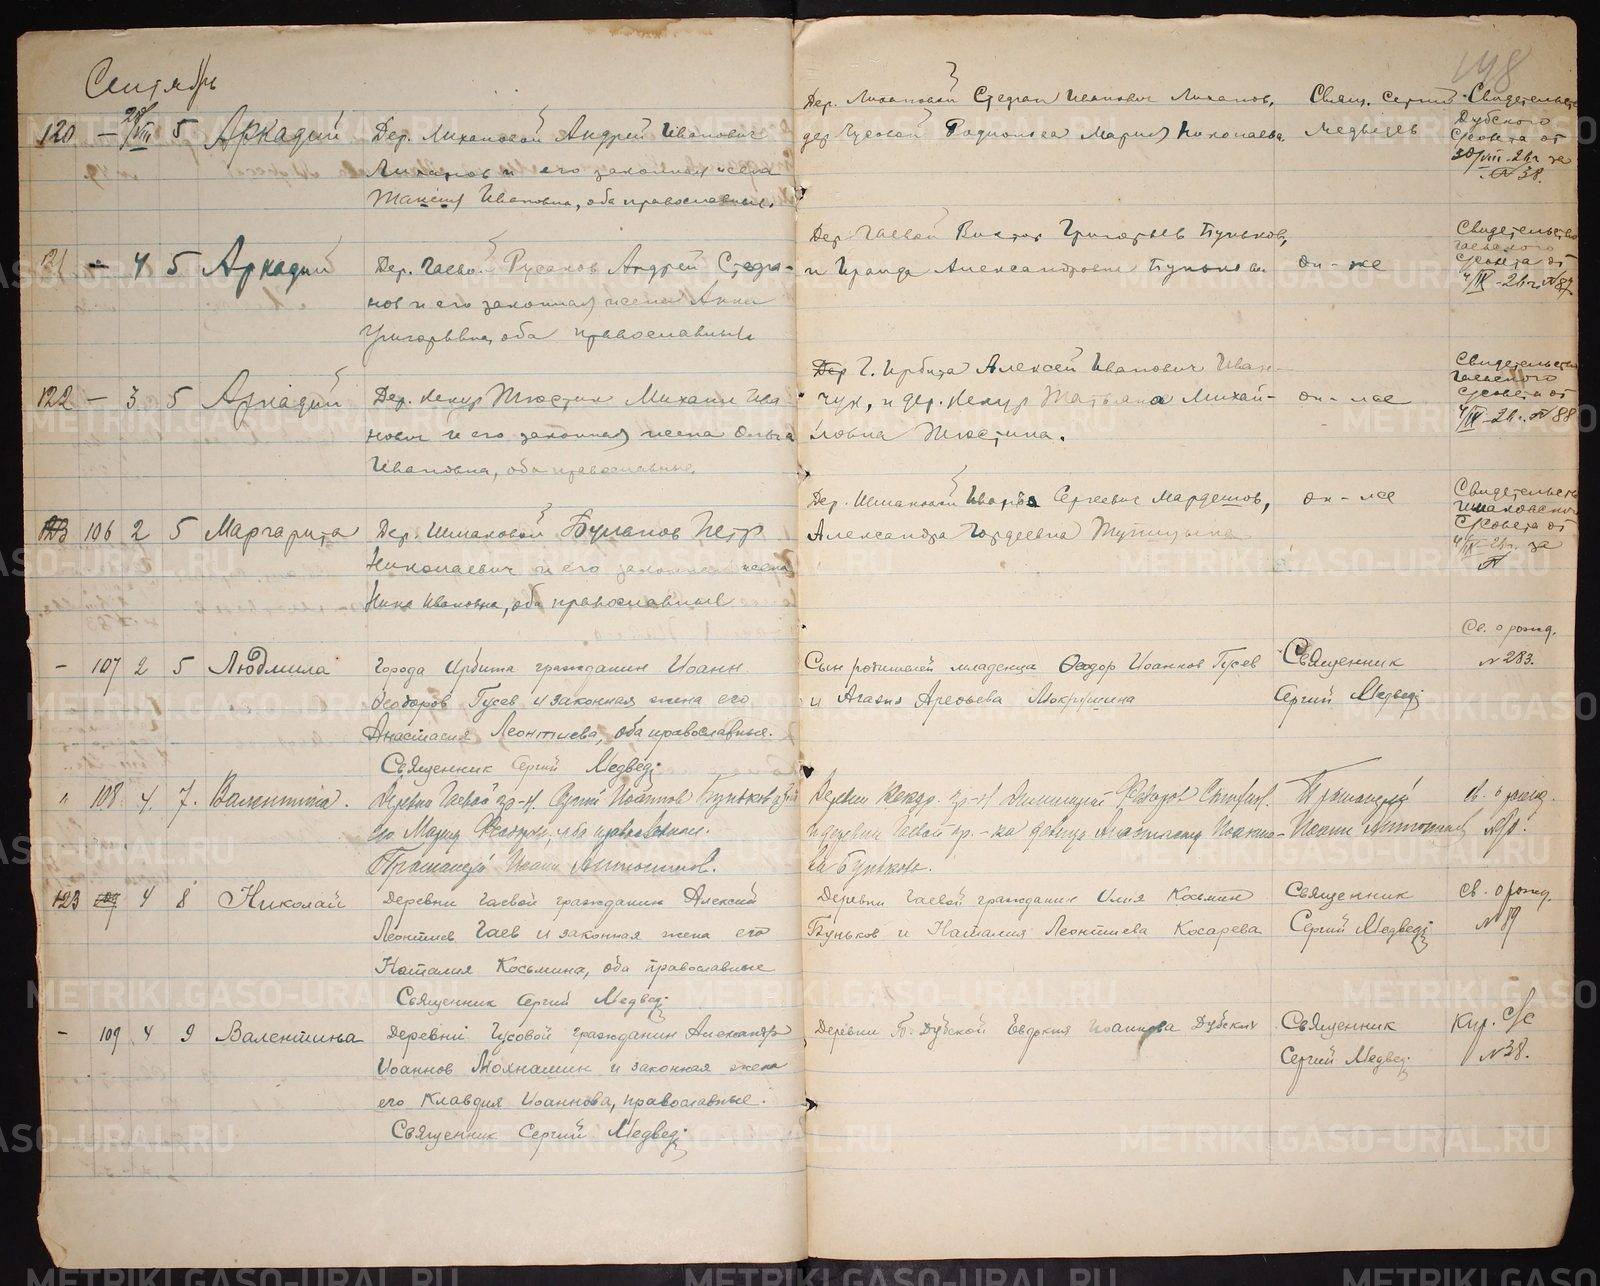 Сентябрь
148
120 — 28/VIII 5 Аркадий
Дер. Лихановой Андрей Иванович
Лиханов и его законная жена
Ивановна, оба православные.
Дер. Лихановой Стефан Иванович Лиханов,
дер. Чусовой Родионова Мария Николаевна.
Свящ. Сергий
Медведев
Свидетельство
Дубского
Совета от
30/VIII-24г за
№ 38.
121 — 4 5 Аркадий
Дер. Гаевой Русаков Андрей Стефа-
нов и его законная жена Анна
Григорьевна, оба православные
Дер. Гаевой Виктор Григорьев Буньков,
и Александровна Бунькова
он - же
Свидетельство
Гаевского
Совета от
4/IX-24г. № 87
122 — 3 5 Аркадий
Дер. Кекур Тюстин Михаил Ива
нович и его законная жена Ольга
Ивановна, оба православные.
Г. Ирбита Алексей Иванович Иван-
чук, и дер. Кекур Татьяна Михай-
ловна Тюстина.
он - же
Свидетельство
Гаевского
Совета от
4/IX-24г. № 88
123 106 2 5 Маргарита
Дер. Шмаковой Буланов Петр
Николаевич и его законная жена
Нина Ивановна, оба православные
Дер. Шмаковой Сергеевич Мардешов,
Александра Гордеевна
он - же
Свидетельство
Шмаковского
Совета от
4/IX-24г. за
№
- 107 2 5 Людмила
Города Ирбита гражданин Иоанн
Феодоров Гусев и законная жена его
Анастасия Леонтиева, оба православные.
Священник Сергий Медвед
Сын родителей младенца Феодор Иоаннов Гусев
и Агафия Арефьева Мокрушина
Священник
Сергий Медвед
Св. о рожд.
№ 283.
" 108 4. 7. Валентина.
Деревни Гаевой гр-н. Сергий Иоаннов Буньков
его Мария Феодор., оба православные.
Протоиерей Иоанн
Деревни Кекур. гр-н Димитрий Феодоров
и деревни Гаевой гр.-ка девица Иоанно-
ва Бунькова.
Протоиерей
Иоанн
св. о рожд.
123 109 4 8 Николай
Деревни Гаевой гражданин Алексий
Леонтиев Гаев и законная жена его
Наталия Косьмина, оба православные
Священник Сергий Медвед
Деревни Гаевой гражданин Илия Косьмин
Буньков и Наталия Леонтиева Косарева
Священник
Сергий Медвед
Св. о рожд.
№ 89
- 109 4 9 Валентина
Деревни Чусовой гражданин Александр
Иоаннов и законная жена
его Клавдия Иоаннова, православные.
Священник Сергий Медвед
Деревни Б. Дубской Евдокия Иоаннова Дубских
Священник
Сергий Медвед
Кир. С/С
№ 38.
METRIKI.GASO-URAL.RU